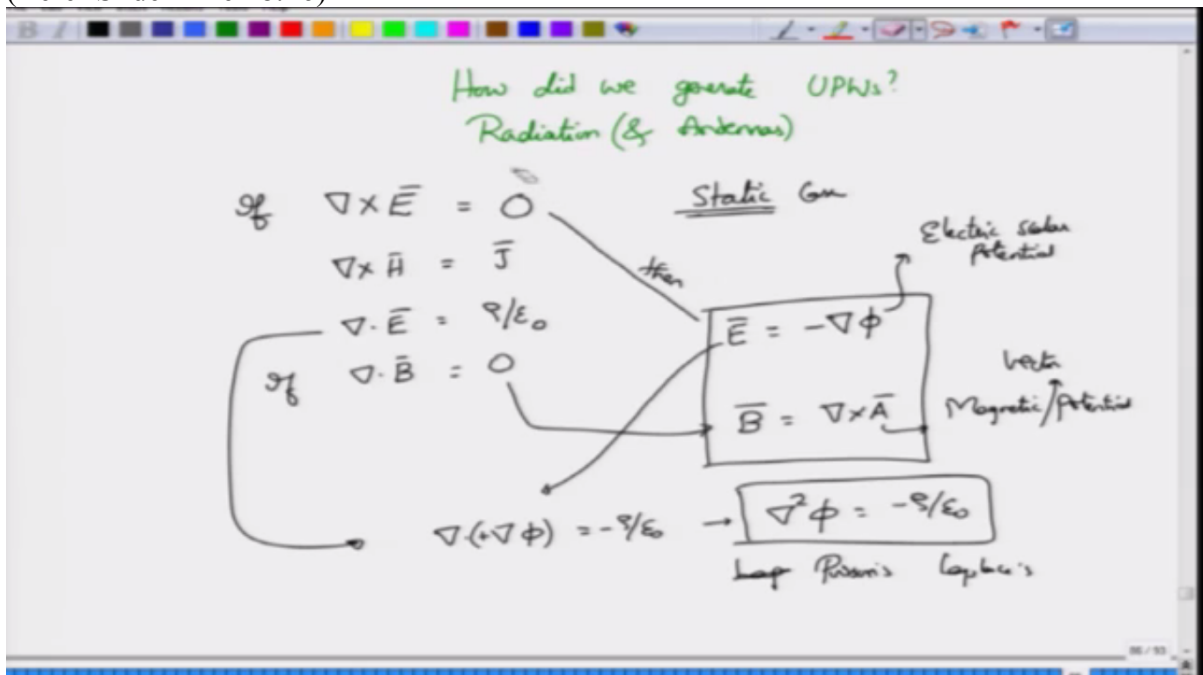 How did we generate UPWs?
Radiation (& Antennas)
If ∇×E̅ = 0
Static Case
∇×H̅ = J̅
then
Electric scalar
Potential
∇·E̅ = ρ/ε₀
E̅ = -∇ϕ
If ∇·B̅ = 0
Vector
Magnetic/Potential
B̅ = ∇×A̅
∇·(+∇ϕ) = -ρ/ε₀ → ∇²ϕ = -ρ/ε₀
Poisson's Laplace's
86 / 93